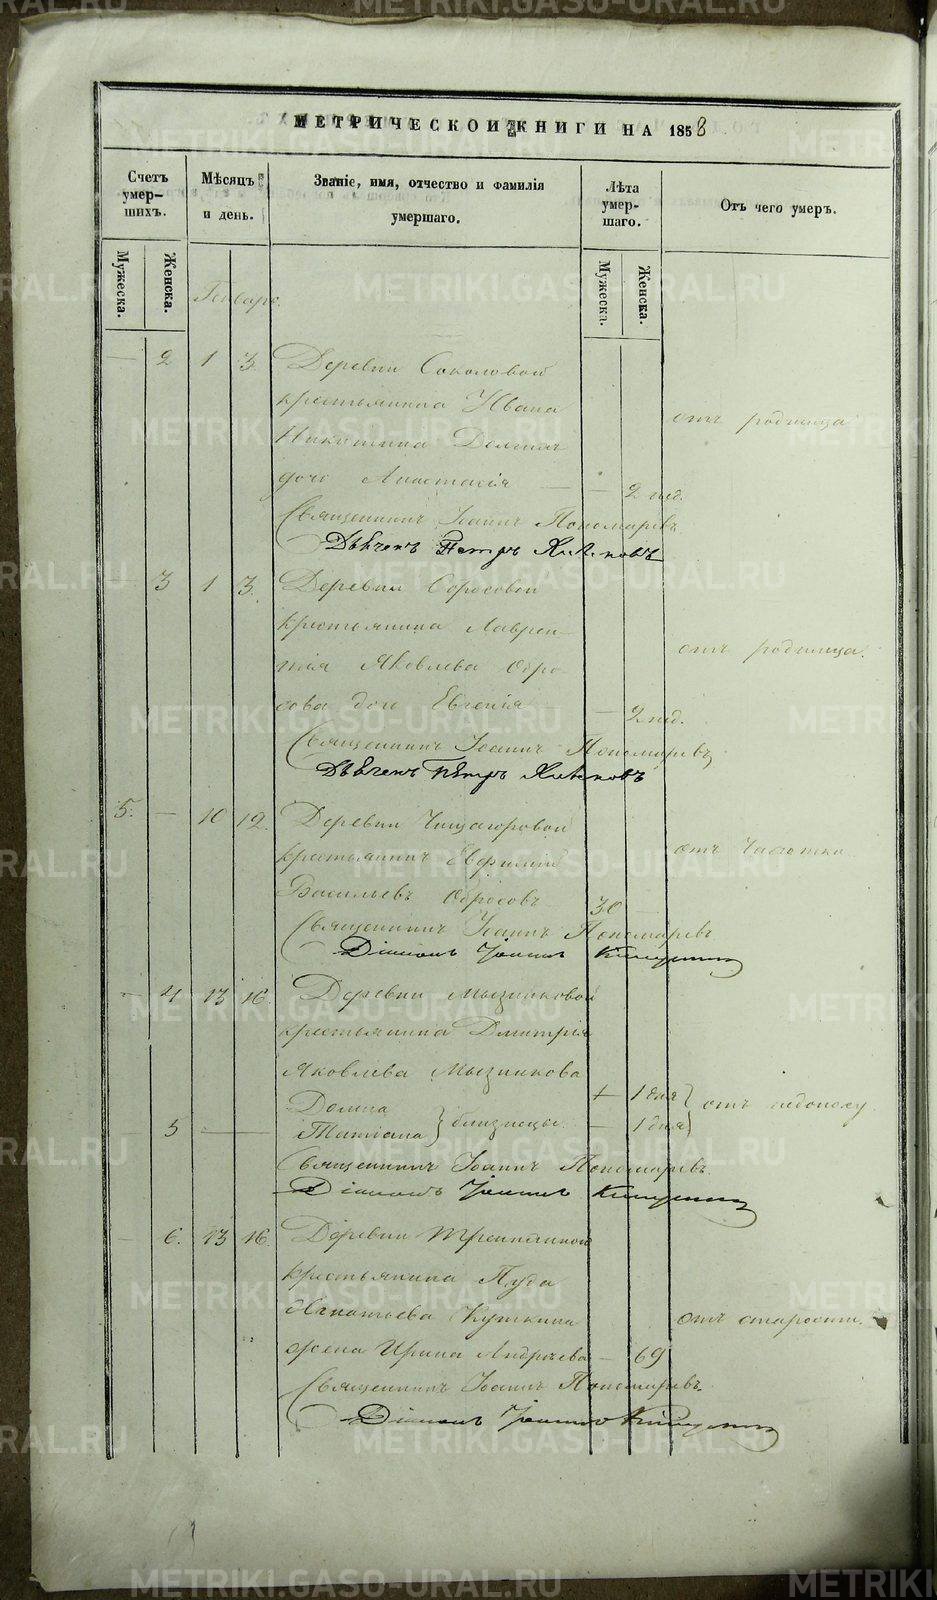 МЕТРИЧЕСКОЙ КНИГИ НА 1858
Счетъ умершихъ.
Мужеска.
Женска.
Мѣсяцъ и день.
Званіе, имя, отчество и фамилія умершаго.
Лѣта умершаго.
Мужеска.
Женска.
Отъ чего умеръ.
Генварь.
— 2 1 3. Деревни Соколовой
крестьянина Ивана
Никитина
дочь Анастасія — — 2 нед.
отъ родимца
Священникъ Іоаннъ Пономаревъ
Дьячекъ Петръ
— 3 1 3. Деревни
крестьянина Лаврен-
тія Яковлева Обро-
сова дочь Евгенія — — 2 нед.
отъ родимца.
Священникъ Іоаннъ Пономаревъ
Дьячекъ Петръ
5. — 10 12. Деревни
крестьянинъ Евфимій
Васильевъ Обросовъ 30 —
отъ чахотки
Священникъ Іоаннъ Пономаревъ
Діаконъ Іоаннъ
— 4 13 16. Деревни Мызниковой
крестьянина Димитрія
Яковлева Мызникова
Домна 1 дня
5 — — Татіана } близнецы. — 1 дня
отъ недоносу
Священникъ Іоаннъ Пономаревъ.
Діаконъ Іоаннъ
— 6. 13 16. Деревни
крестьянина Пуда
Игнатьева Куткина
жена Ирина Андреева — 69
отъ старости.
Священникъ Іоаннъ Пономаревъ.
Діаконъ Іоаннъ
METRIKI.GASO-URAL.RU